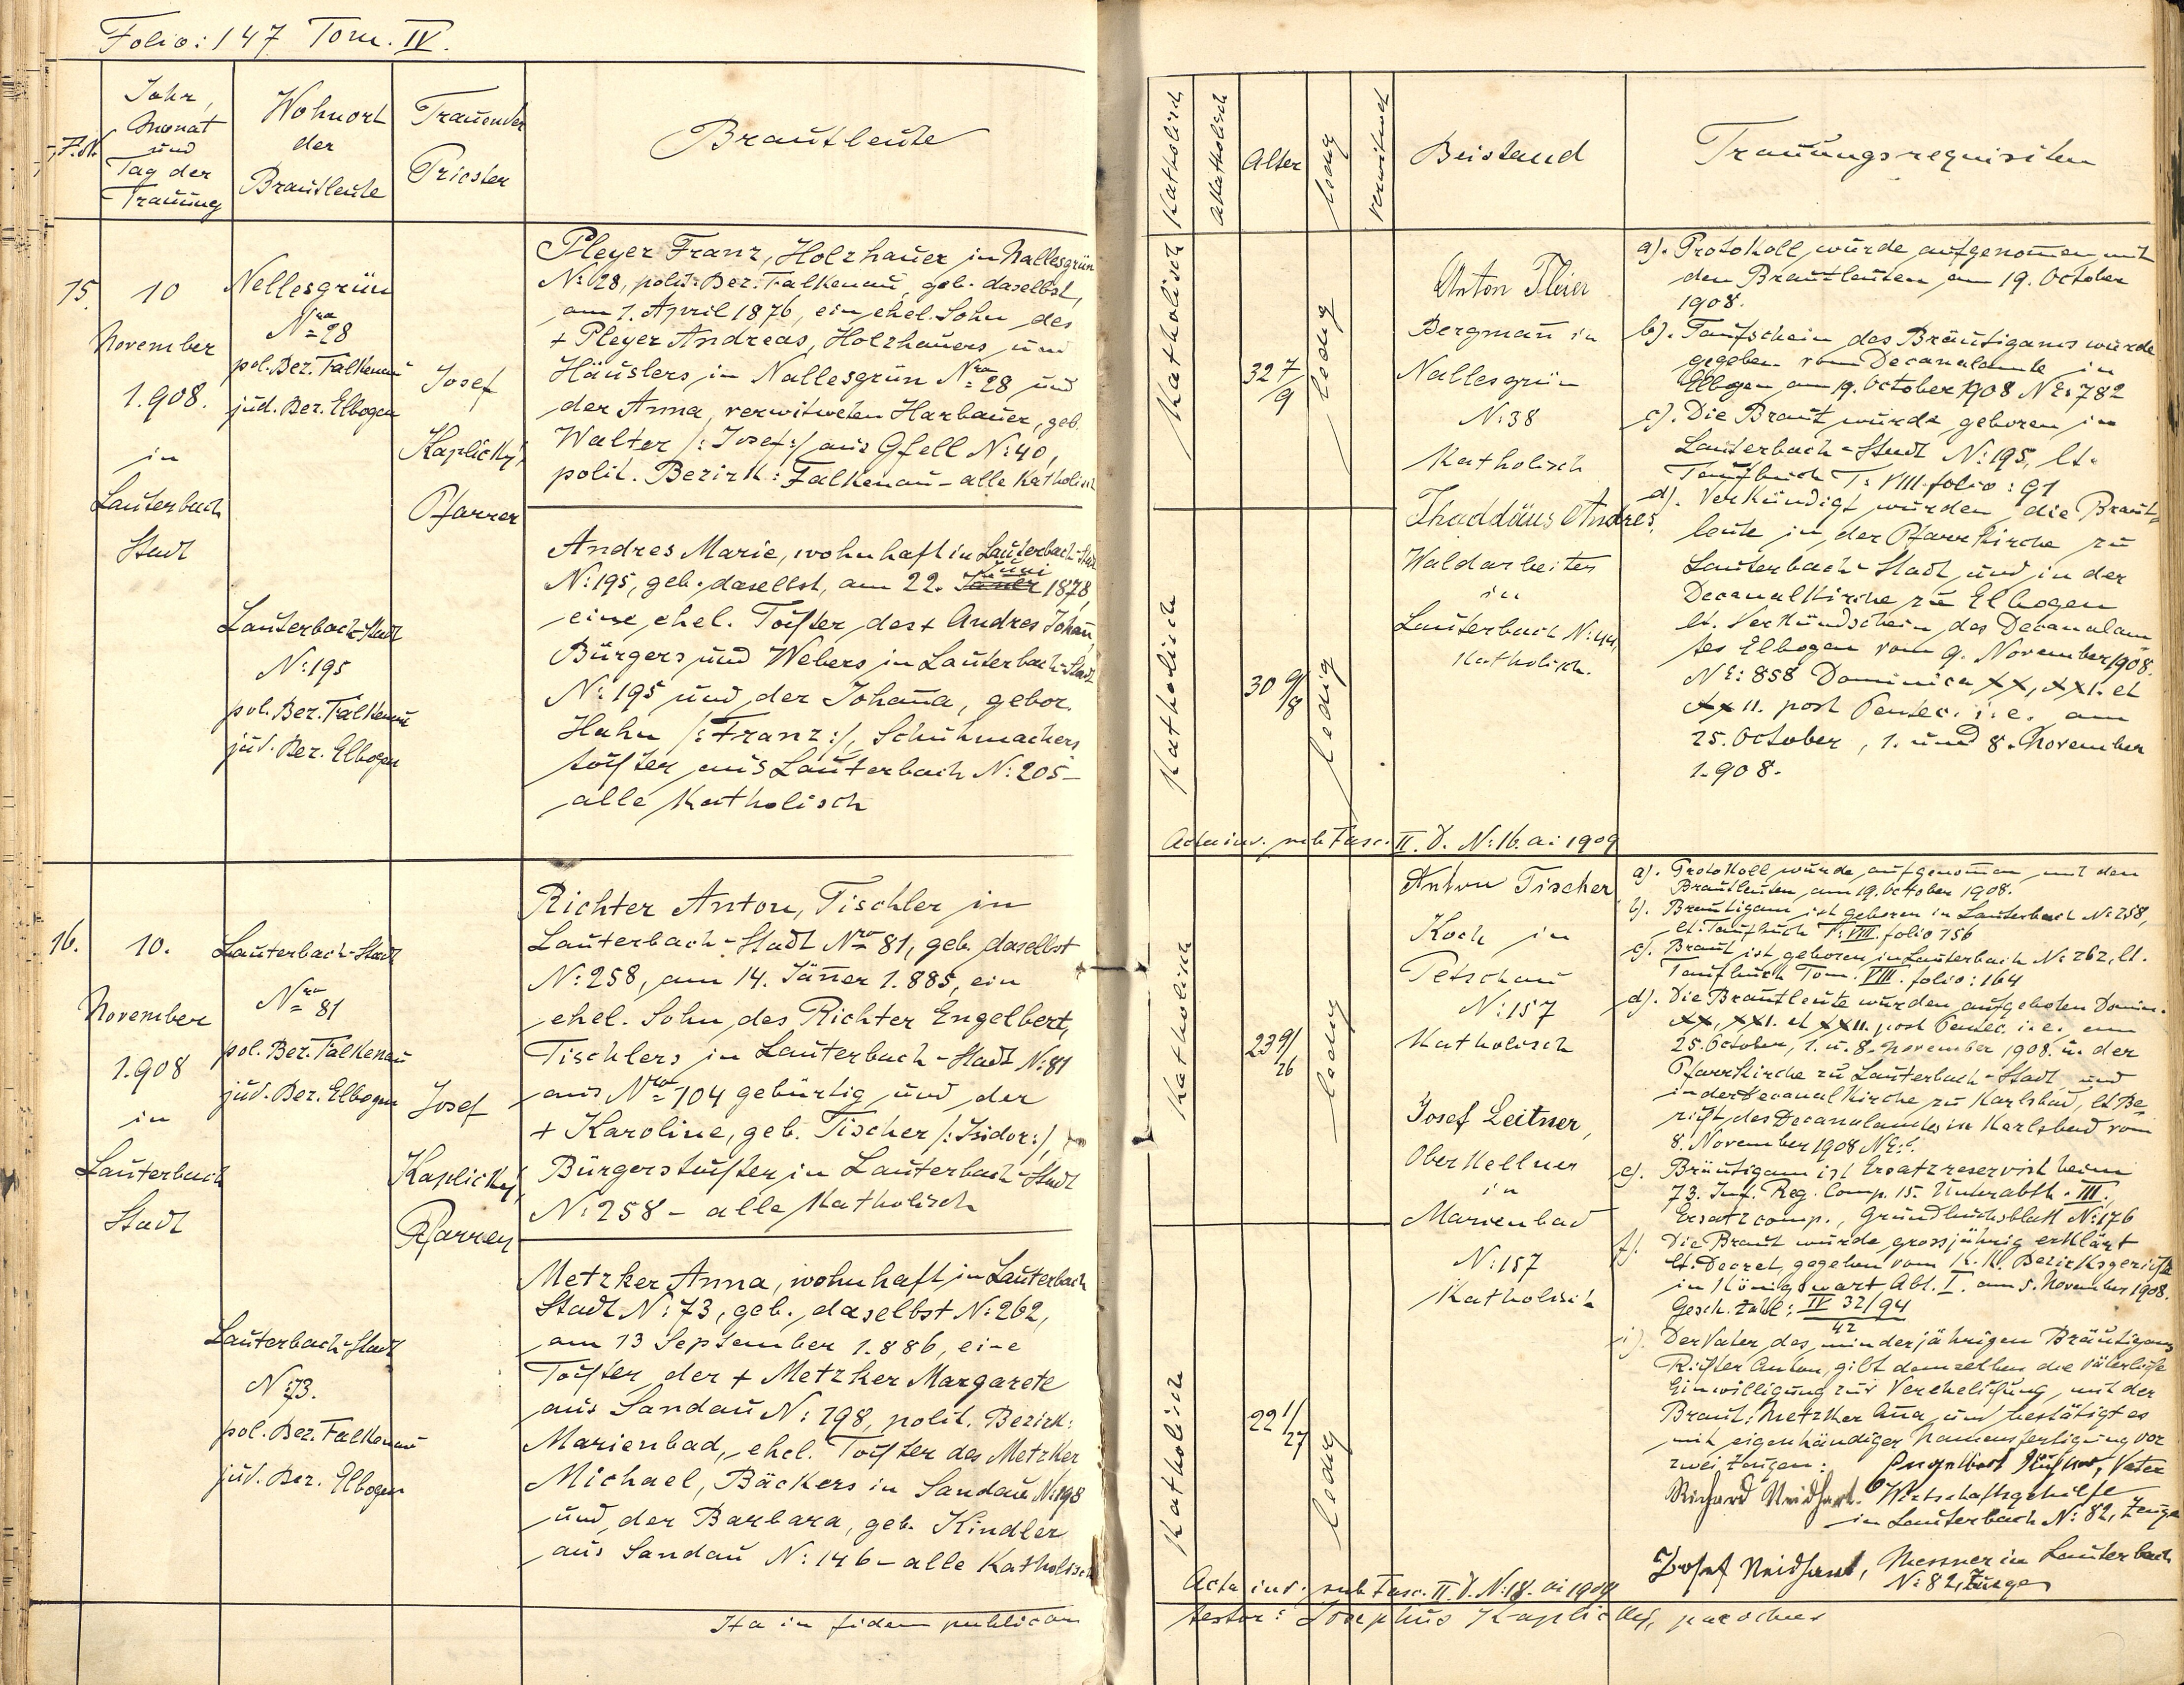 Folio: 147 Tom. IV.
Jahr,
Monat
und
Tag der
Trauung
Wohnort
der
Brautleute
Trauender
Priester
Brautleute
15
10
November
1.908.
in
Lauterbach
Stadt
Nellesgrün
Nro 28
pol. Bez. Falkenau
jud. Bez. Elbogen
Josef
Kaplický,
Pfarrer
Pleyer Franz, Holzhauer in Nallesgrün
N: 28, polit. Bez. Falkenau, geb. daselbst,
am 1. April 1876, ein ehel. Sohn des
+ Pleyer Andreas, Holzhauers und
Häuslers in Nallesgrün Nro 28 und
der Anna, verwitweten Harbauer, geb.
Walter /: Josef :/ aus Gfell N: 40,
polit. Bezirk: Falkenau - alle Katholisch
Lauterbach-Stadt
N: 195
pol. Bez. Falkenau
jud. Bez. Elbogen
Andres Marie, wohnhaft in Lauterbach-Stadt
Juni
N: 195, geb. daselbst, am 22. Jäner 1878,
eine ehel. Tochter des + Andres Johañ,
Bürgers und Webers in Lauterbach-Stadt
N: 195 und der Johaña, gebor.
Hahn /: Franz :/, Schuhmachers
tochter aus Lauterbach N: 205 -
alle Katholisch
16.
10.
November
1.908
in
Lauterbach
Stadt
Lauterbach-Stadt
Nro 81
pol. Bez. Falkenau
jud. Bez. Elbogen
Josef
Kaplický,
Pfarrer
Richter Anton, Tischler in
Lauterbach-Stadt Nro 81, geb. daselbst
N: 258, am 14. Jäñer 1.885, ein
ehel. Sohn des Richter Engelbert,
Tischlers in Lauterbach-Stadt N: 81
aus Nro 104 gebürtig und der
+ Karoline, geb. Tischer /: Isidor :/
Bürgerstochter in Lauterbach-Stadt
N: 258 - alle Katholisch
Lauterbach-Stadt
N: 73.
pol. Bez. Falkenau
jud. Bez. Elbogen
Metzker Anna, wohnhaft in Lauterbach
Stadt N: 73, geb. daselbst N: 262,
am 13 September 1.886, eine
Tochter der + Metzker Margarete
aus Sandau N: 198, polit. Bezirk:
Marienbad, ehel. Tochter des Metzker
Michael, Bäckers in Sandau N: 198
und der Barbara, geb. Kindler
aus Sandau N: 146 - alle Katholisch
Ita in fidem publicam
Katholisch
Akatholisch
Alter
ledig
verwitwet
Beistand
Trauungsrequisiten
Katholisch
32 7/9
ledig
Anton Pleier
Bergmañ in
Nallesgrün
N: 38
Katholisch
Katholisch
30 9/8
ledig
Thaddäus Andres,
Waldarbeiter
in
Lauterbach N: 44,
Katholisch.
a). Protokoll wurde aufgenom̃en mit
den Brautleuten am 19. October
1908.
b). Taufschein des Bräutigams wurde
gegeben vom Decanalamte in
Elbogen am 19. October 1908 NE: 782
c). Die Braut wurde geboren in
Lauterbach-Stadt N: 195, lt.
Taufbuch T: VIII. folio: 91
d). Verkündigt wurden die Braut-
leute in der Pfarrkirche zu
Lauterbach-Stadt und in der
Decanalkirche zu Elbogen
lt. Verkündschein des Decanalam-
tes Elbogen vom 9. November 1908.
NE: 858 Dominica XX, XXI. et
XXII. post Pentec. i. e. am
25. October, 1. und 8. November
1.908.
Acta inv. sub Fasc. II. D. N: 16. ai 1909
Katholisch
23 9/26
ledig
Anton Tischer
Koch in
Petschau
N: 157
Katholisch
Katholisch
22 1/27
ledig
Josef Leitner,
Oberkellner
in
Marienbad
N: 157
Katholisch
a). Protokoll wurde aufgenom̃en mit den
Brautleuten am 19. October 1908.
b). Bräutigam ist geboren in Lauterbach N: 258,
lt. Taufbuch T: VIII. folio 156
c). Braut ist geboren in Lauterbach N: 262, lt.
Taufbuch Tom. VIII. folio: 164
d). Die Brautleute wurden aufgeboten Domin.
XX, XXI. et XXII. post Pentec. i. e. am
25. October, 1. u. 8. November 1908. in der
Pfarrkirche zu Lauterbach-Stadt und
in der Decanalkirche zu Karlsbad, lt. Be-
richt des Decanalamtes in Karlsbad vom
8. November 1908 NE:
e). Bräutigam ist Ersatzreservist beim
73. Inf. Reg. Comp. 15. Unterabth. III.
Ersatzcomp., Grundbuchsblatt N: 176
f). Die Braut wurde grossjährig erklärt
lt. Decret, gegeben vom K. K. Bezirksgerichte
in Königswart Abt. I. am 5. November 1908.
Gesch. Zahl: IV 32/94
42
i). Der Vater des minderjährigen Bräutigams
Richter Anton, gibt demselben die väterliche
Einwilligung zur Verehelichung mit der
Braut: Metzker Aña und bestätigt es
mit eigenhändiger Namensfertigung vor
zwei Zeugen: Engelbert Richter, Vater
Richard Neidhart. Wirtschaftsgehilfe
in Lauterbach N: 82, Zeuge
Josef Neidhart, Messner in Lauterbach
N: 82, Zeuge
Acta inv. sub Fasc. II. D. N: 18. ai 1909
testor: Josephus Kaplický, parochus